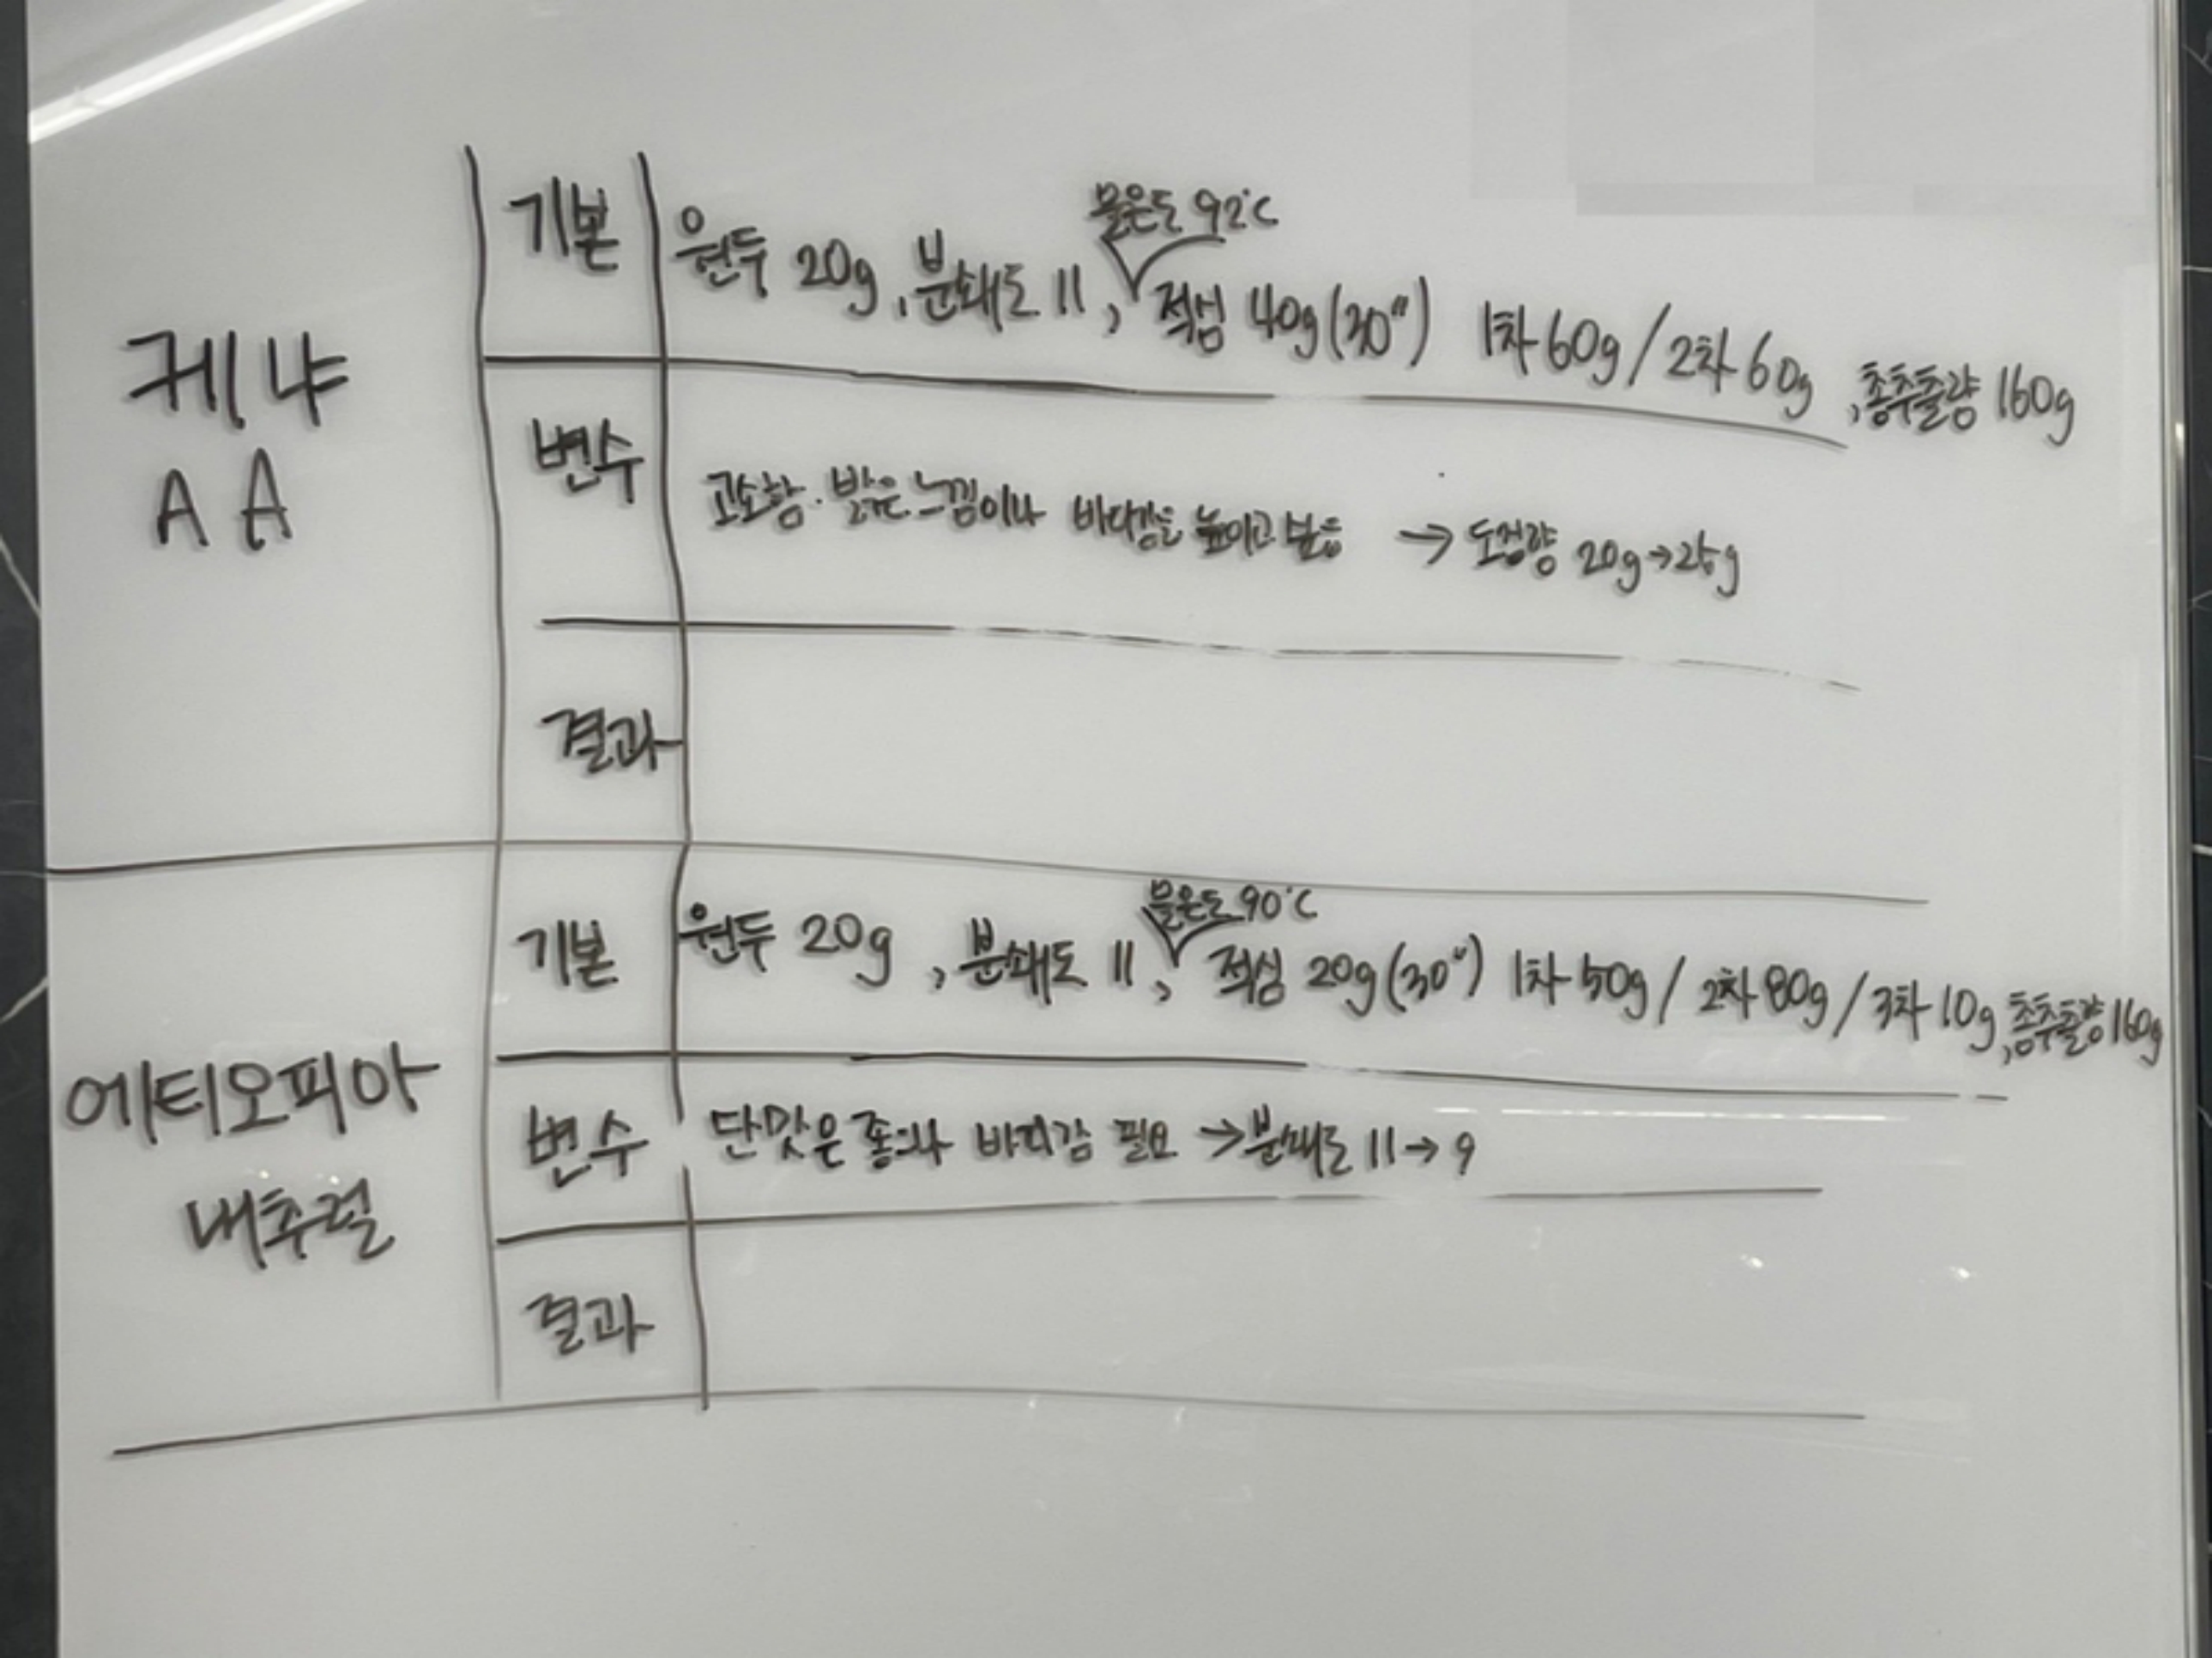 케냐
AA
기본
물온도 92°C
원두 20g, 분쇄도 11, 적심 40g(30") 1차 60g/2차 60g, 총추출량 160g
변수
고소함. 밝은 느낌이나 바디감을 높이고 싶음 → 도징량 20g→25g
결과
에티오피아
내추럴
기본
물온도 90°C
원두 20g, 분쇄도 11, 적심 20g(30") 1차 50g/2차 80g/3차 10g, 총추출량 160g
변수
단맛은 좋으나 바디감 필요 → 분쇄도 11→9
결과